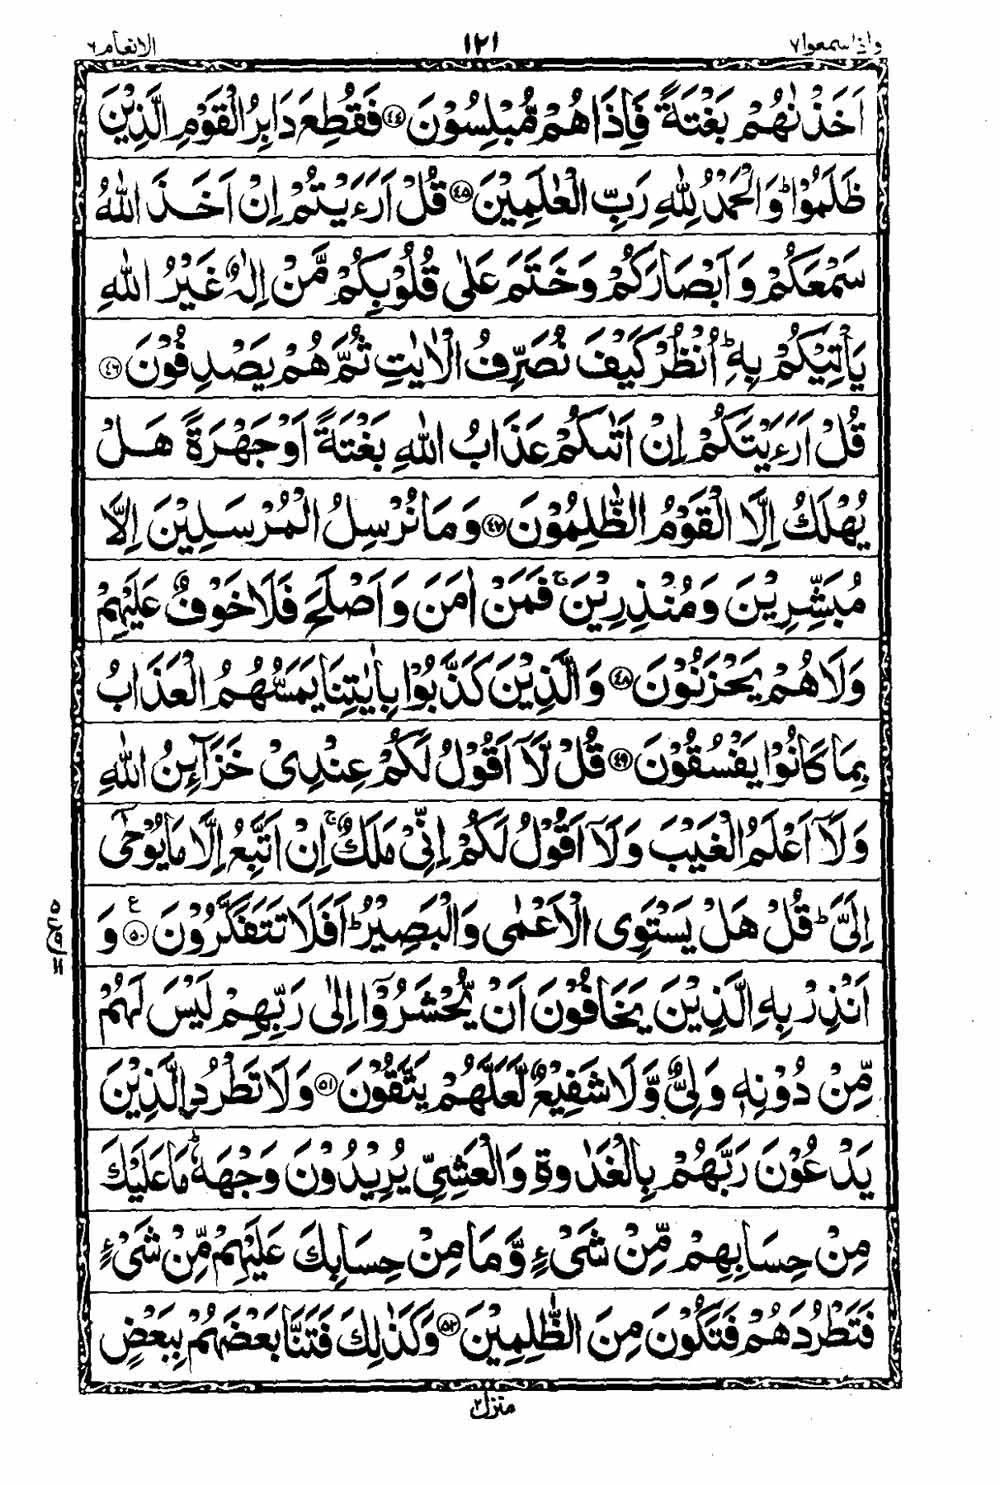 واذاسمعوا٧ ١٢١ الانعام ٦
اَخَذْنٰهُمْ بَغْتَةً فَاِذَا هُمْ مُّبْلِسُوْنَ ﴿٤٤﴾ فَقُطِعَ دَابِرُ الْقَوْمِ الَّذِيْنَ
ظَلَمُوْا ؕ وَالْحَمْدُ لِلّٰهِ رَبِّ الْعٰلَمِيْنَ ﴿٤٥﴾ قُلْ اَرَءَيْتُمْ اِنْ اَخَذَ اللّٰهُ
سَمْعَكُمْ وَاَبْصَارَكُمْ وَخَتَمَ عَلٰى قُلُوْبِكُمْ مَّنْ اِلٰهٌ غَيْرُ اللّٰهِ
يَاْتِيْكُمْ بِهٖ ؕ اُنْظُرْ كَيْفَ نُصَرِّفُ الْاٰيٰتِ ثُمَّ هُمْ يَصْدِفُوْنَ ﴿٤٦﴾
قُلْ اَرَءَيْتَكُمْ اِنْ اَتٰىكُمْ عَذَابُ اللّٰهِ بَغْتَةً اَوْ جَهْرَةً هَلْ
يُهْلَكُ اِلَّا الْقَوْمُ الظّٰلِمُوْنَ ﴿٤٧﴾ وَمَا نُرْسِلُ الْمُرْسَلِيْنَ اِلَّا
مُبَشِّرِيْنَ وَمُنْذِرِيْنَ ۚ فَمَنْ اٰمَنَ وَاَصْلَحَ فَلَا خَوْفٌ عَلَيْهِمْ
وَلَا هُمْ يَحْزَنُوْنَ ﴿٤٨﴾ وَالَّذِيْنَ كَذَّبُوْا بِاٰيٰتِنَا يَمَسُّهُمُ الْعَذَابُ
بِمَا كَانُوْا يَفْسُقُوْنَ ﴿٤٩﴾ قُلْ لَّاۤ اَقُوْلُ لَكُمْ عِنْدِيْ خَزَآئِنُ اللّٰهِ
وَلَاۤ اَعْلَمُ الْغَيْبَ وَلَاۤ اَقُوْلُ لَكُمْ اِنِّيْ مَلَكٌ ۚ اِنْ اَتَّبِعُ اِلَّا مَا يُوْحٰۤى
اِلَيَّ ؕ قُلْ هَلْ يَسْتَوِى الْاَعْمٰى وَالْبَصِيْرُ ؕ اَفَلَا تَتَفَكَّرُوْنَ ﴿٥٠﴾ ع وَ
اَنْذِرْ بِهِ الَّذِيْنَ يَخَافُوْنَ اَنْ يُّحْشَرُوْۤا اِلٰى رَبِّهِمْ لَيْسَ لَهُمْ
مِّنْ دُوْنِهٖ وَلِيٌّ وَّلَا شَفِيْعٌ لَّعَلَّهُمْ يَتَّقُوْنَ ﴿٥١﴾ وَلَا تَطْرُدِ الَّذِيْنَ
يَدْعُوْنَ رَبَّهُمْ بِالْغَدٰوةِ وَالْعَشِيِّ يُرِيْدُوْنَ وَجْهَهٗ ؕ مَا عَلَيْكَ
مِنْ حِسَابِهِمْ مِّنْ شَيْءٍ وَّمَا مِنْ حِسَابِكَ عَلَيْهِمْ مِّنْ شَيْءٍ
فَتَطْرُدَهُمْ فَتَكُوْنَ مِنَ الظّٰلِمِيْنَ ﴿٥٢﴾ وَكَذٰلِكَ فَتَنَّا بَعْضَهُمْ بِبَعْضٍ
منزل٢